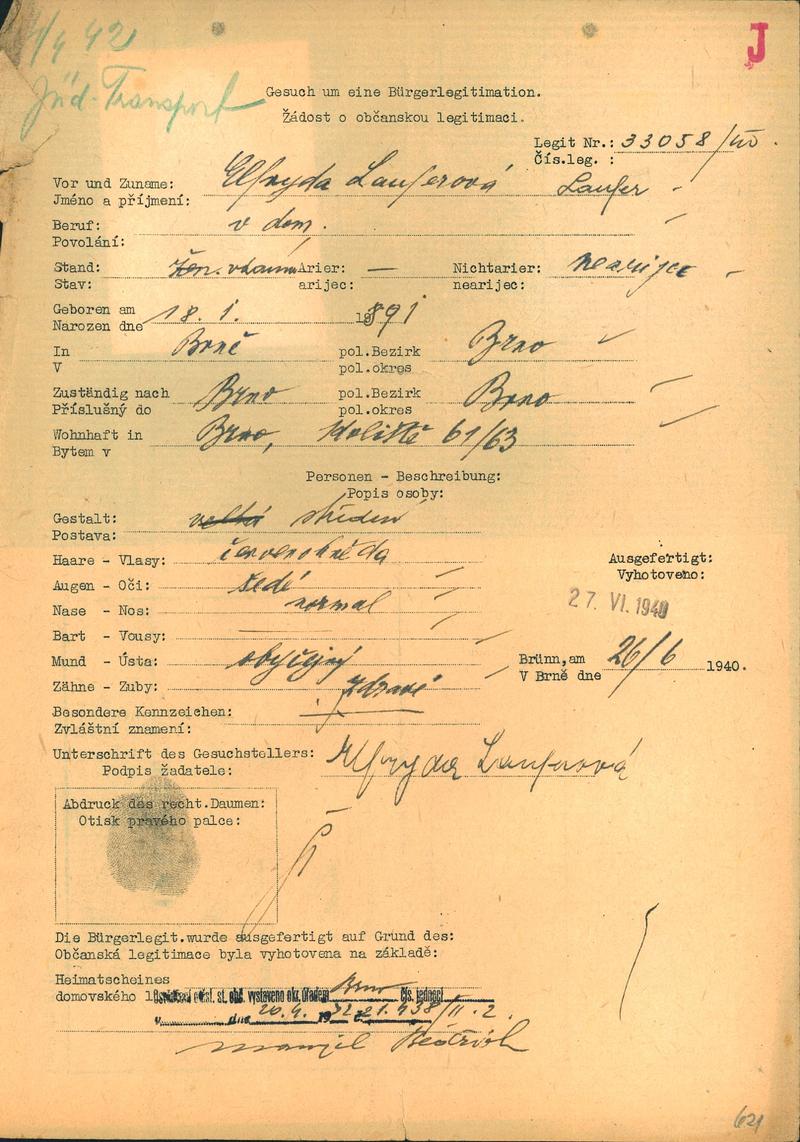 1/4 42
J
Jüd. Transport
Gesuch um eine Bürgerlegitimation.
Žádost o občanskou legitimaci.
Legit Nr.: 33058/
Čís.leg. :
Vor und Zuname: Elfryda Lauferová Laufer
Jméno a příjmení:
Beruf: v dom.
Povolání:
Stand: vdaná Arier: — Nichtarier: nearijec
Stav: arijec: nearijec:
Geboren am 18. 1. 1891
Narozen dne
In Brně pol.Bezirk Brno
V pol.okres
Zuständig nach Brno pol.Bezirk Brno
Příslušný do pol.okres
Wohnhaft in Brno, Koliště 61/63
Bytem v
Personen - Beschreibung:
Popis osoby:
Gestalt: velká střední
Postava:
Haare - Vlasy: červenohnědá
Augen - Oči: šedé
Nase - Nos: normal
Bart - Vousy:
Mund - Ústa: obyčejný
Zähne - Zuby: zdravé
Besondere Kennzeichen:
Zvláštní znamení:
Ausgefertigt:
Vyhotoveno:
27. VI. 1940
Brünn,am 26/6 1940.
V Brně dne
Unterschrift des Gesuchstellers: Elfryda Lauferová
Podpis žadatele:
Abdruck des recht.Daumen:
Otisk pravého palce:
Die Bürgerlegit.wurde ausgefertigt auf Grund des:
Občanská legitimace byla vyhotovena na základě:
Heimatscheines
domovského čsl. st. obč. vystaveno okr. úřadem Brno čís. jednací
v dne 20.4. 1932 21.438/II-2.
manžel Bedřich
621